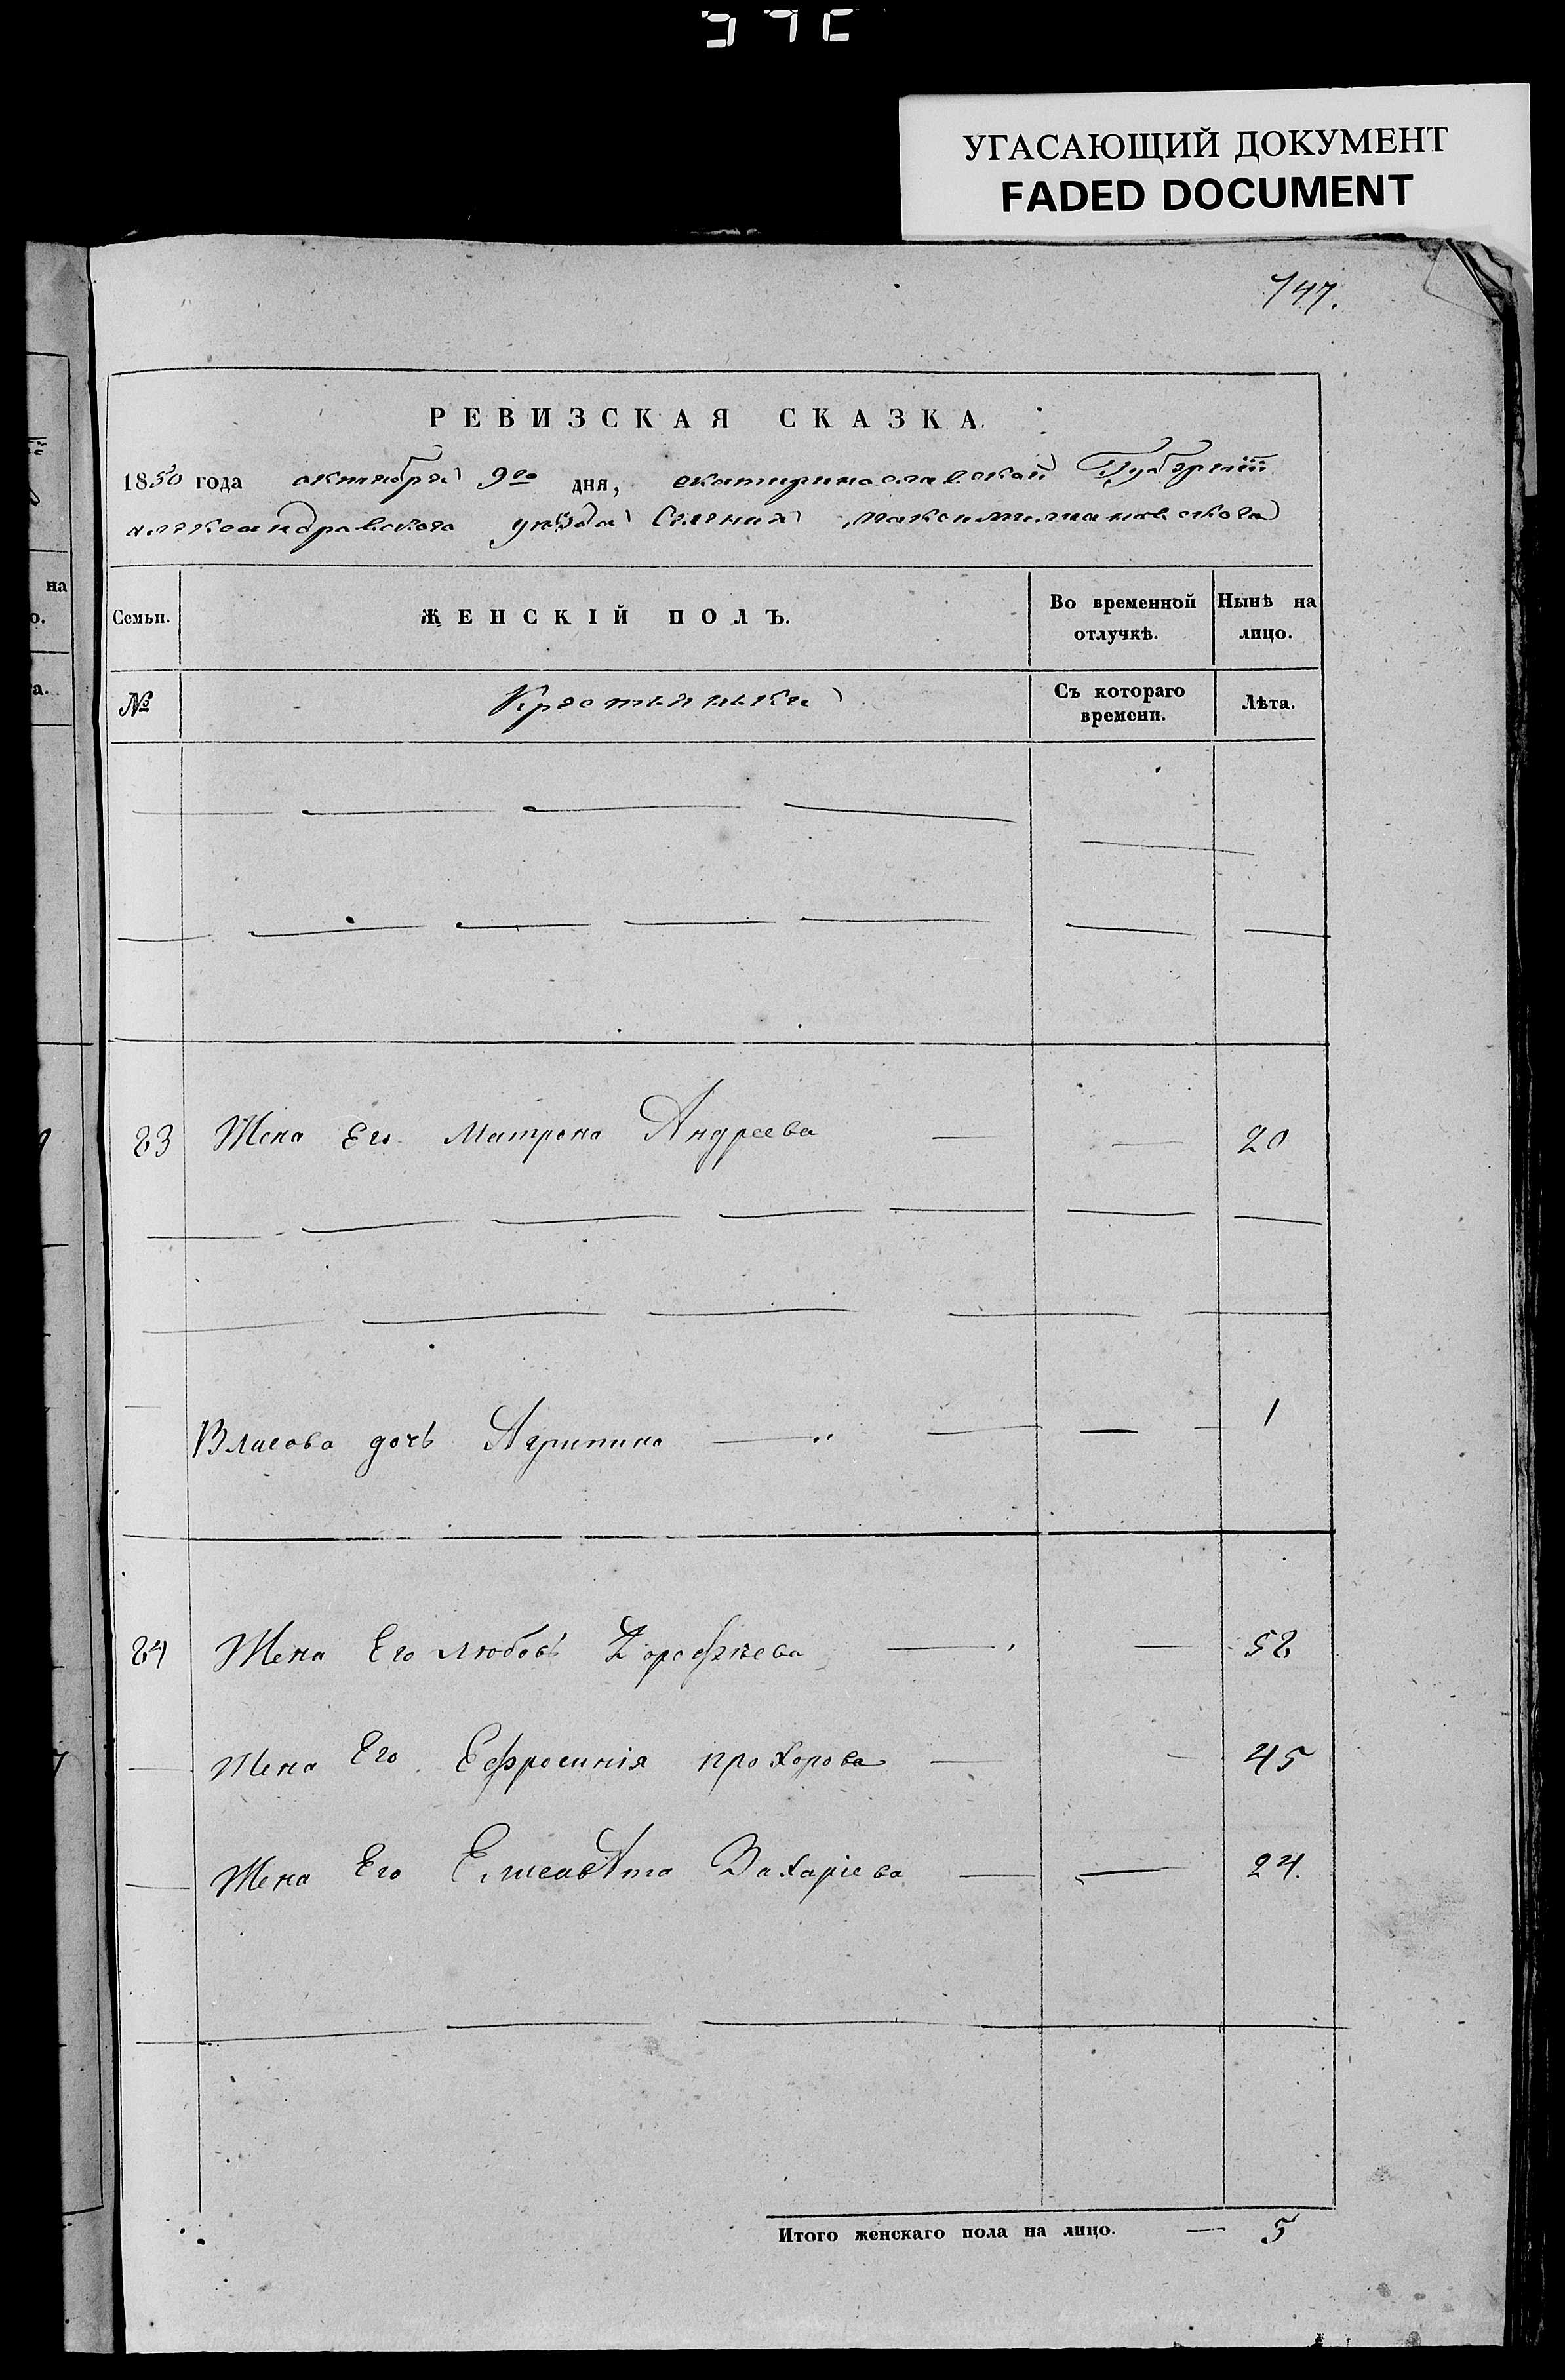 УГАСАЮЩИЙ ДОКУМЕНТ
FADED DOCUMENT
747.
РЕВИЗСКАЯ СКАЗКА.
1850 года октября 9го дня, екатеринославской Губернiи
александравскаго уѣзда Селения максимилиановскога
Семьи. ЖЕНСКІЙ ПОЛЪ. Во временной отлучкѣ. Нынѣ на лицо.
№ Крестьяньки Съ котораго времени. Лѣта.
83 Жена Его Матрена Андреева — — 20
Власова дочь Агрипина — — — 1
84 Жена Его любовь Дорофѣева — — 58
Жена Его Ефросинія прохорова — — 45
Жена Его Елисавета Захаріева — — 24.
Итого женскаго пола на лицо. — 5